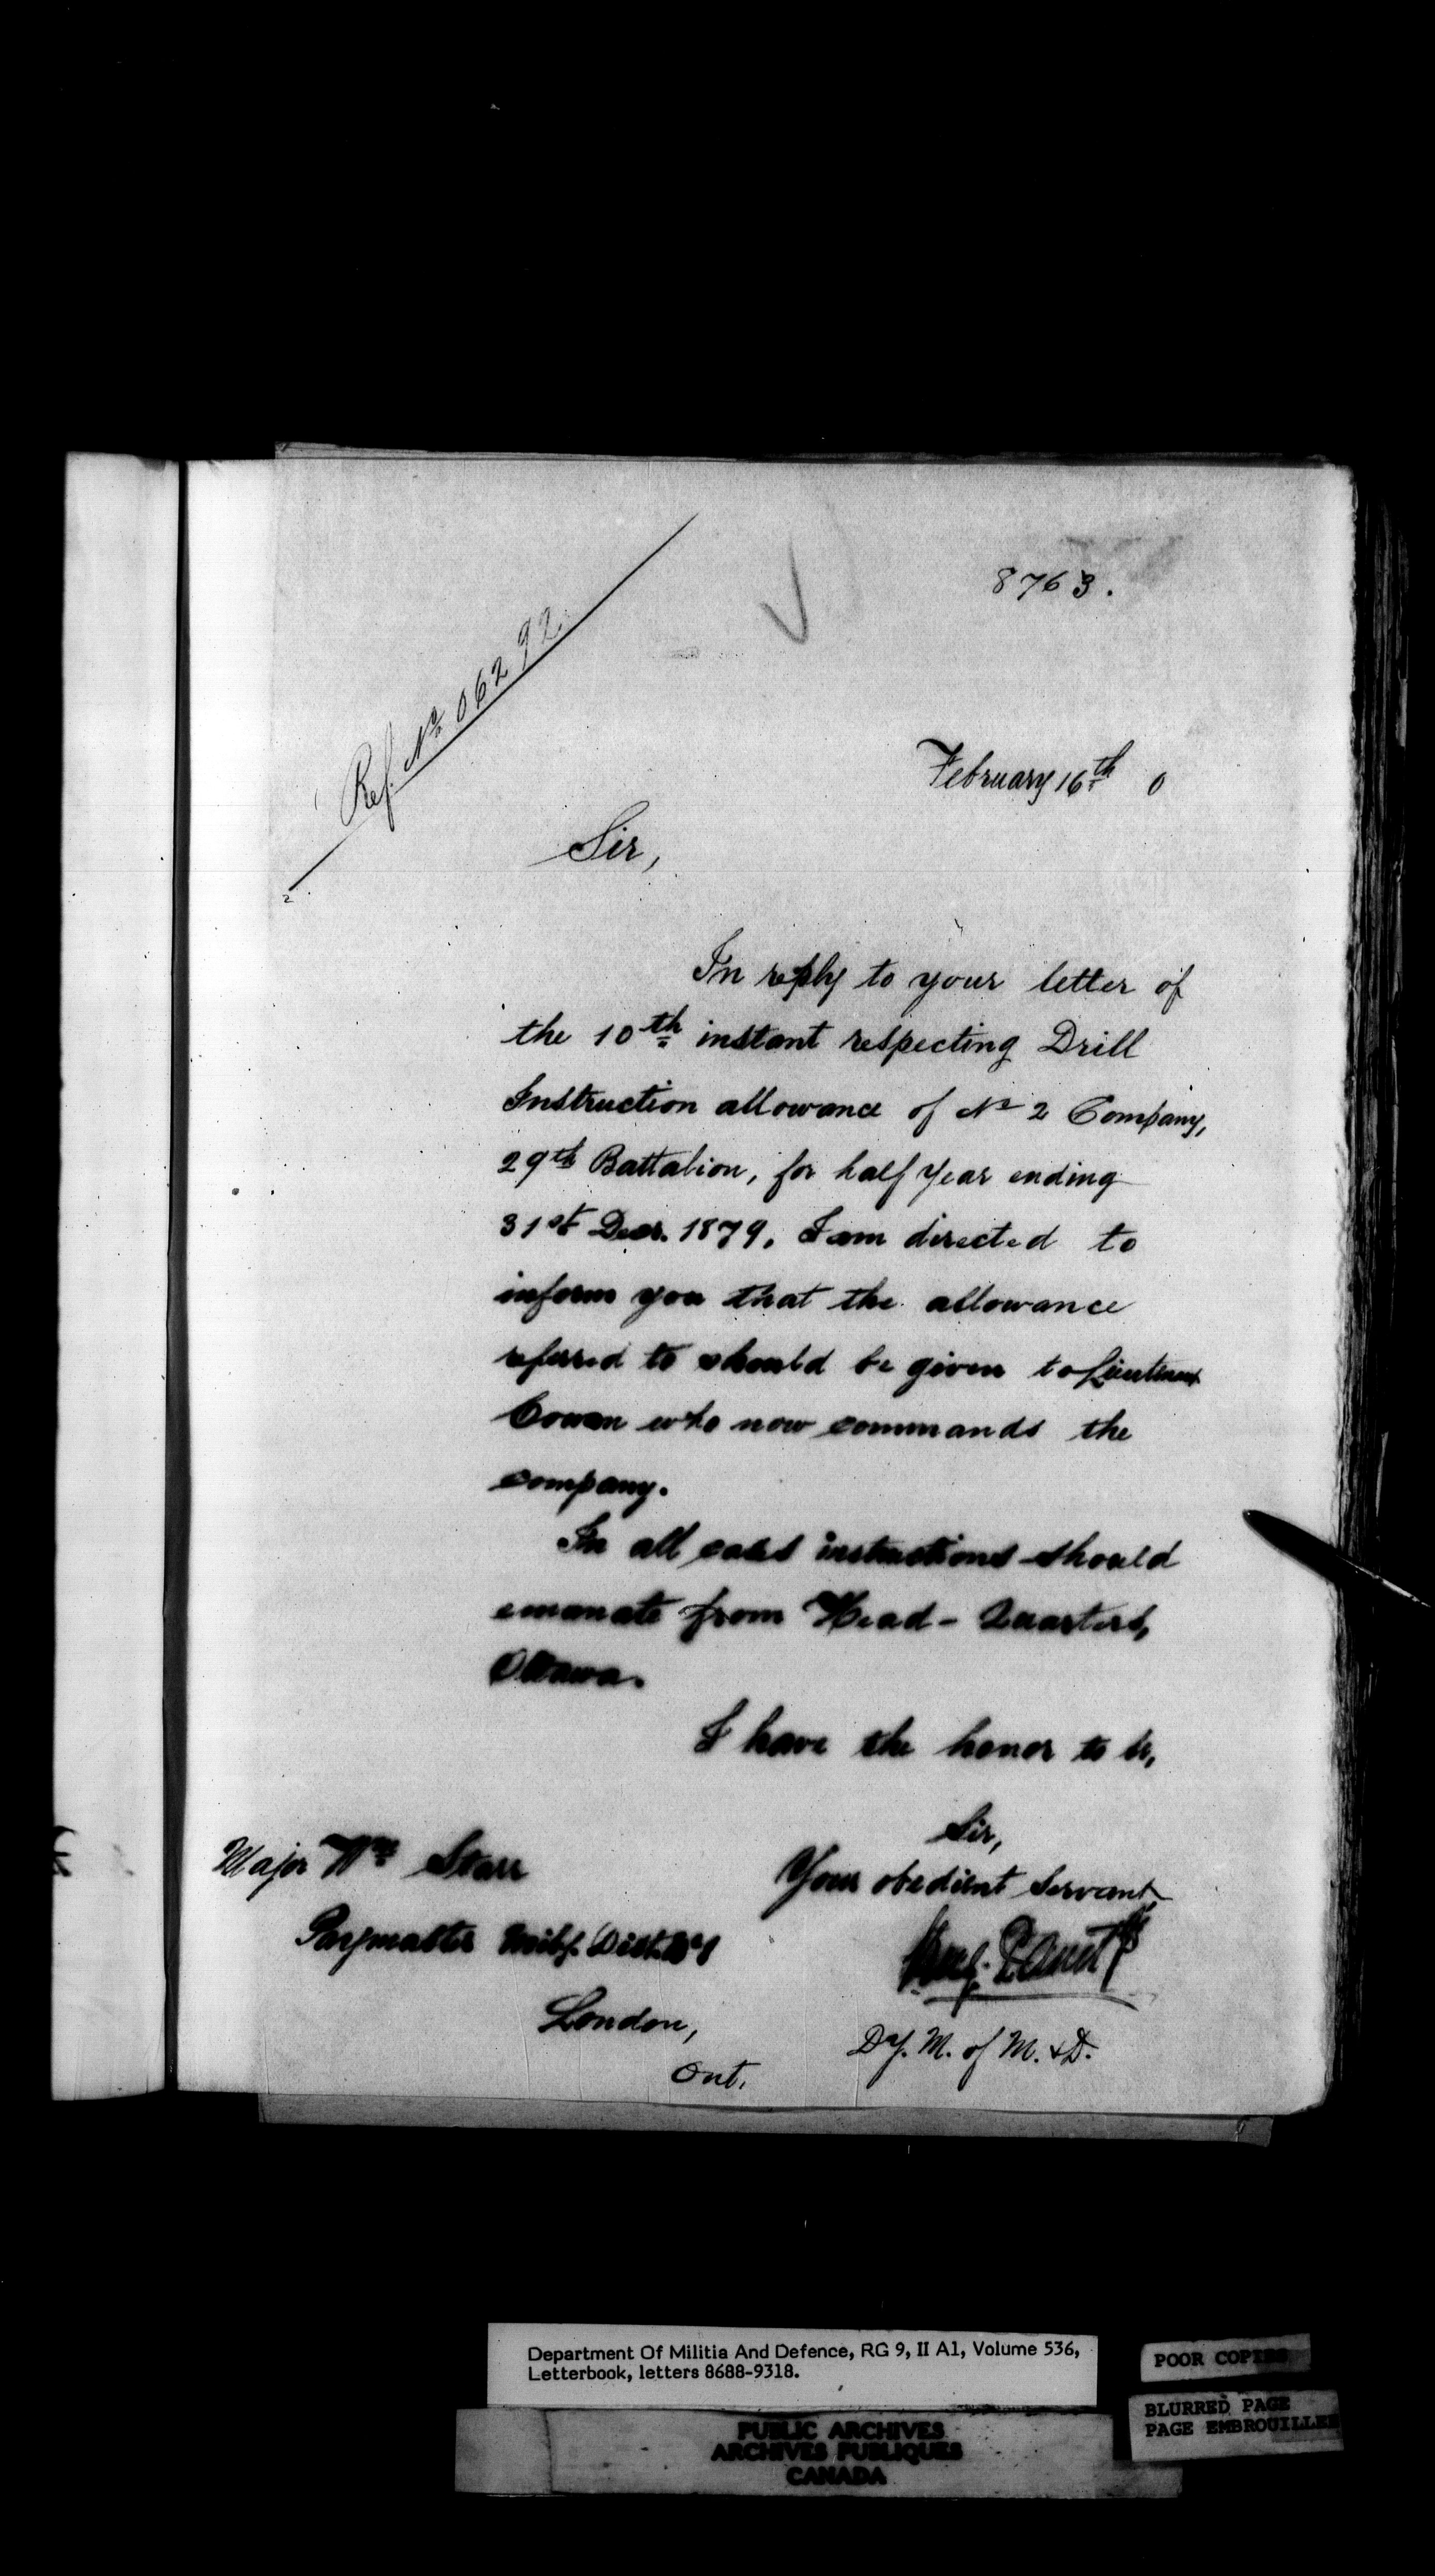 8763.
Ref. No. 06292.
February 16th 0
Sir,
In reply to your letter of
the 10th instant respecting Drill
Instruction allowance of No 2 Company,
29th Battalion, for half year ending
31st Decr. 1879, I am directed to
inform you that the allowance
referred to should be given to Lieutenant
Cowan who now commands the
company.
In all cases instructions should
emanate from Head-Quarters,
Ottawa.
I have the honor to be,
Sir,
Your obedient Servant,
Dy. M. of M. & D.
Major Wm Starr
Paymaster Mily. Dist. No 1
London,
Ont.
Department Of Militia And Defence, RG 9, II A1, Volume 536,
Letterbook, letters 8688-9318.
POOR COPIES
BLURRED PAGE
PAGE EMBROUILLEE
PUBLIC ARCHIVES
ARCHIVES PUBLIQUES
CANADA